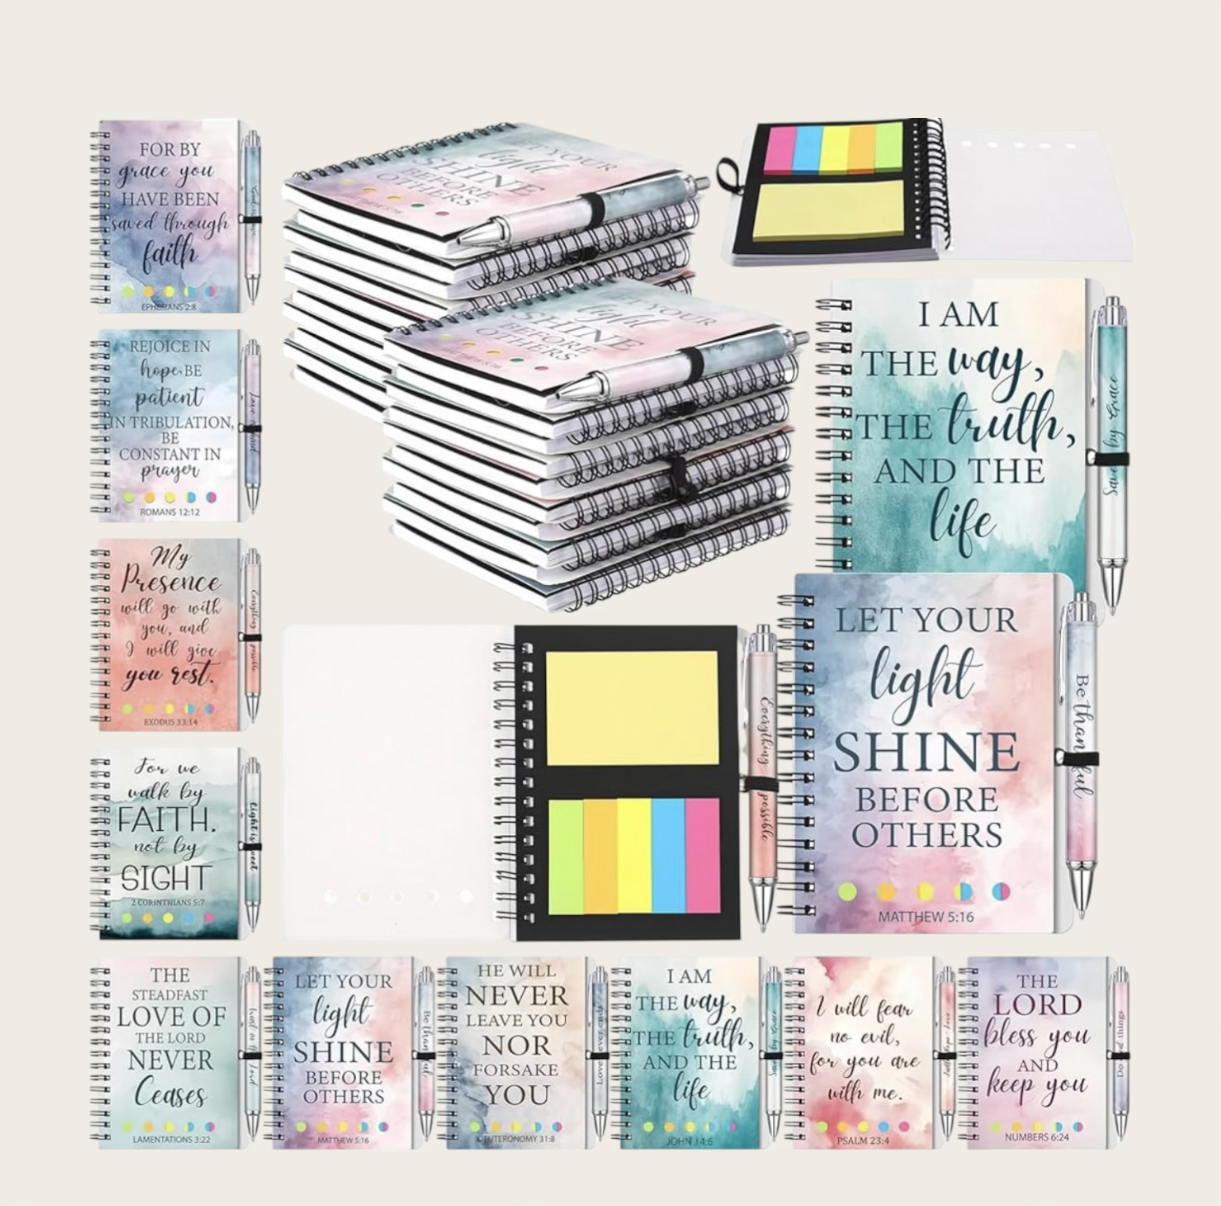 FOR BY
grace you
HAVE BEEN
saved through
faith
EPHESIANS 2:8
REJOICE IN
hope, BE
patient
IN TRIBULATION,
BE
CONSTANT IN
prayer
ROMANS 12:12
My
Presence
will go with
you, and
I will give
you rest.
EXODUS 33:14
Everything possible
For we
walk by
FAITH,
not by
SIGHT
2 CORINTHIANS 5:7
LET YOUR
light
SHINE
BEFORE
OTHERS
LET YOUR
light
SHINE
BEFORE
OTHERS
I AM
THE way,
THE truth,
AND THE
life
Saved by Grace
Everything possible
LET YOUR
light
SHINE
BEFORE
OTHERS
MATTHEW 5:16
Be thankful
THE
STEADFAST
LOVE OF
THE LORD
NEVER
Ceases
LAMENTATIONS 3:22
LET YOUR
light
SHINE
BEFORE
OTHERS
MATTHEW 5:16
Be thankful
HE WILL
NEVER
LEAVE YOU
NOR
FORSAKE
YOU
DEUTERONOMY 31:8
I AM
THE way,
THE truth,
AND THE
life
JOHN 14:6
Saved by Grace
I will fear
no evil,
for you are
with me.
PSALM 23:4
THE
LORD
bless you
AND
keep you
NUMBERS 6:24